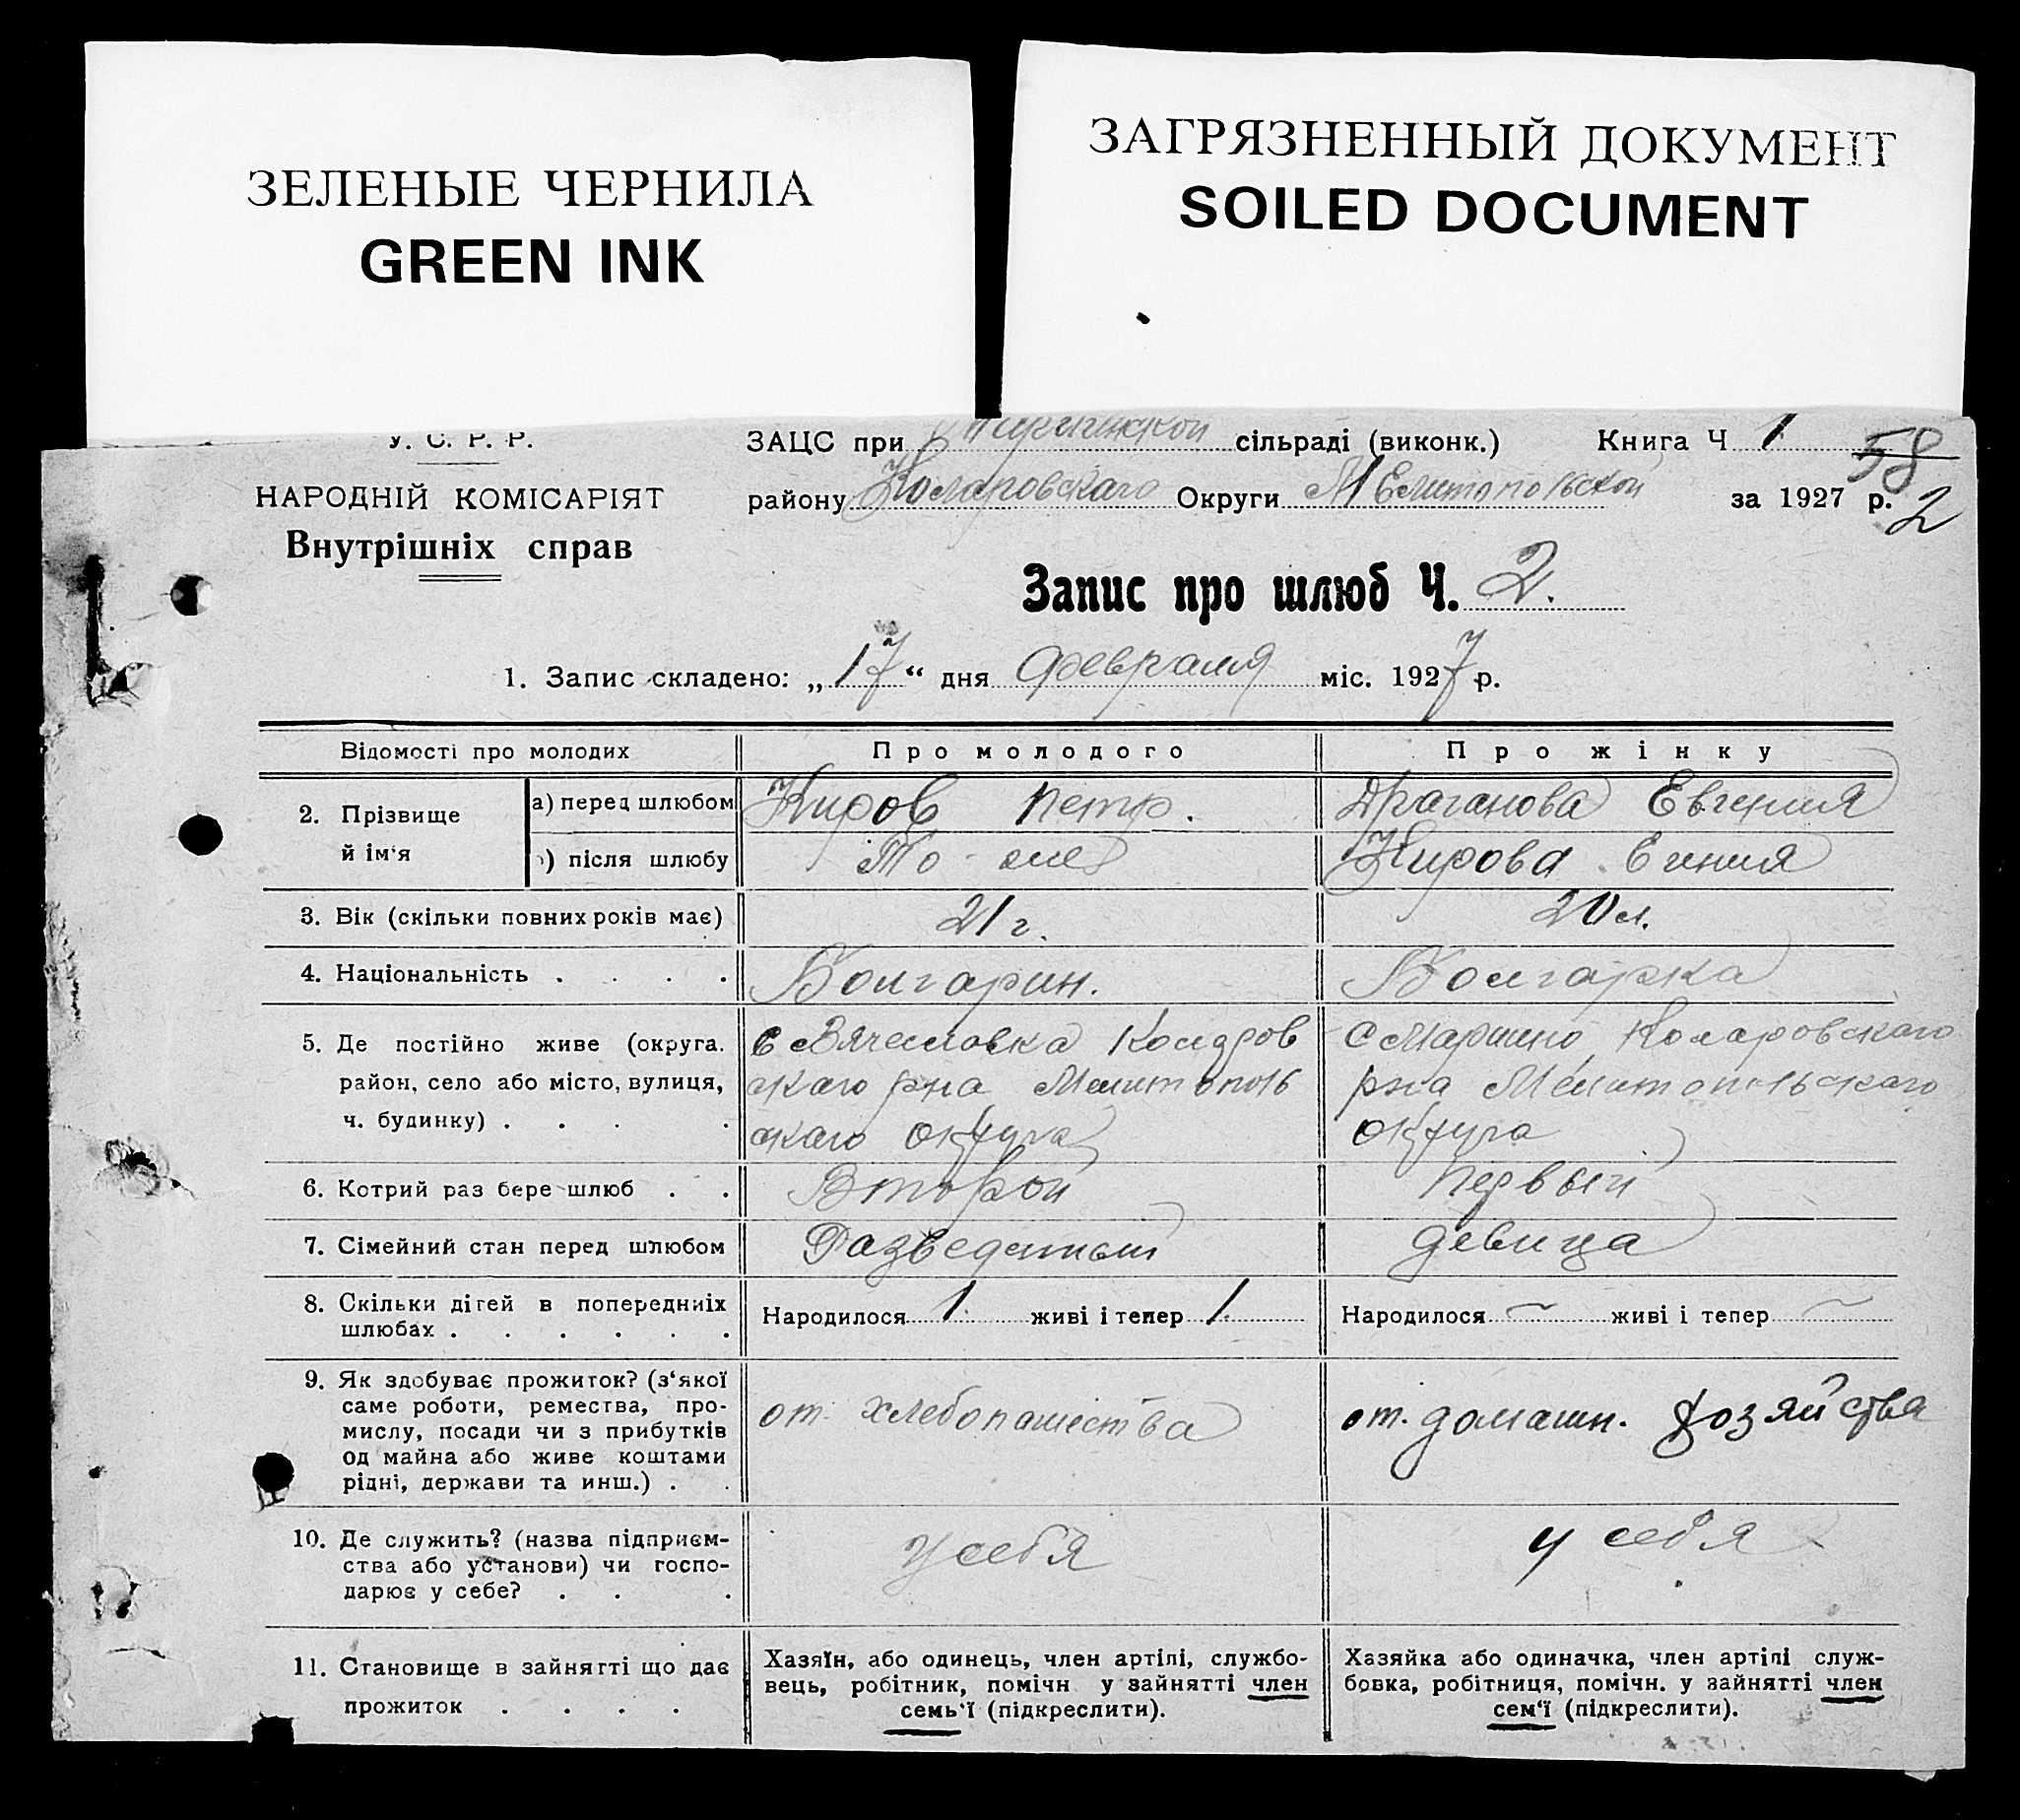 ЗЕЛЕНЫЕ ЧЕРНИЛА
GREEN INK
ЗАГРЯЗНЕННЫЙ ДОКУМЕНТ
SOILED DOCUMENT
У. С. Р. Р.
НАРОДНІЙ КОМІСАРІЯТ
Внутрішніх справ
ЗАЦС при сільраді (виконк.) Книга Ч 1
58
району Коларовскаго Округи Мелитопольской за 1927 р.
2
Запис про шлюб Ч. 2.
1. Запис складено: „17“ дня февраля міс. 1927 р.
Відомості про молодих Про молодого Про жінку
2. Прізвище й ім‘я
а) перед шлюбом Киров Петр. Драганова Евгения
) після шлюбу То-же Кирова Евгения
3. Вік (скільки повних років має) 21 г. 20 л.
4. Національність . . . . Болгарин. Болгарка
5. Де постійно живе (округа. район, село або місто, вулиця, ч. будинку) . . . .
с Вячеславка Коларов
скаго рна Мелитополь
скаго округа
с Марино Коларовскаго
рна Мелитопольскаго
округа
6. Котрий раз бере шлюб . . Второй Первый
7. Сімейний стан перед шлюбом Разведенный девица
8. Скільки дітей в попередниіх шлюбах . . . . . .
Народилося 1. живі і тепер 1.
Народилося — живі і тепер —
9. Як здобуває прожиток? (з‘якої
саме роботи, ремества, про-
мислу, посади чи з прибутків
од майна або живе коштами
рідні, держави та инш.) . .
от хлебопашества
от. домашн. хозяйства
10. Де служить? (назва підприєм-
ства або установи) чи госпо-
дарює у себе? . . .
у себя
у себя
11. Становище в зайнятті що дає
прожиток . . . .
Хазяїн, або одинець, член артілі, службо-
вець, робітник, помічн у зайнятті член
семь‘ї (підкреслити).
Хазяйка або одиначка, член артілі служ-
бовка, робітниця, помічн. у зайнятті член
сем‘ї (підкреслити).